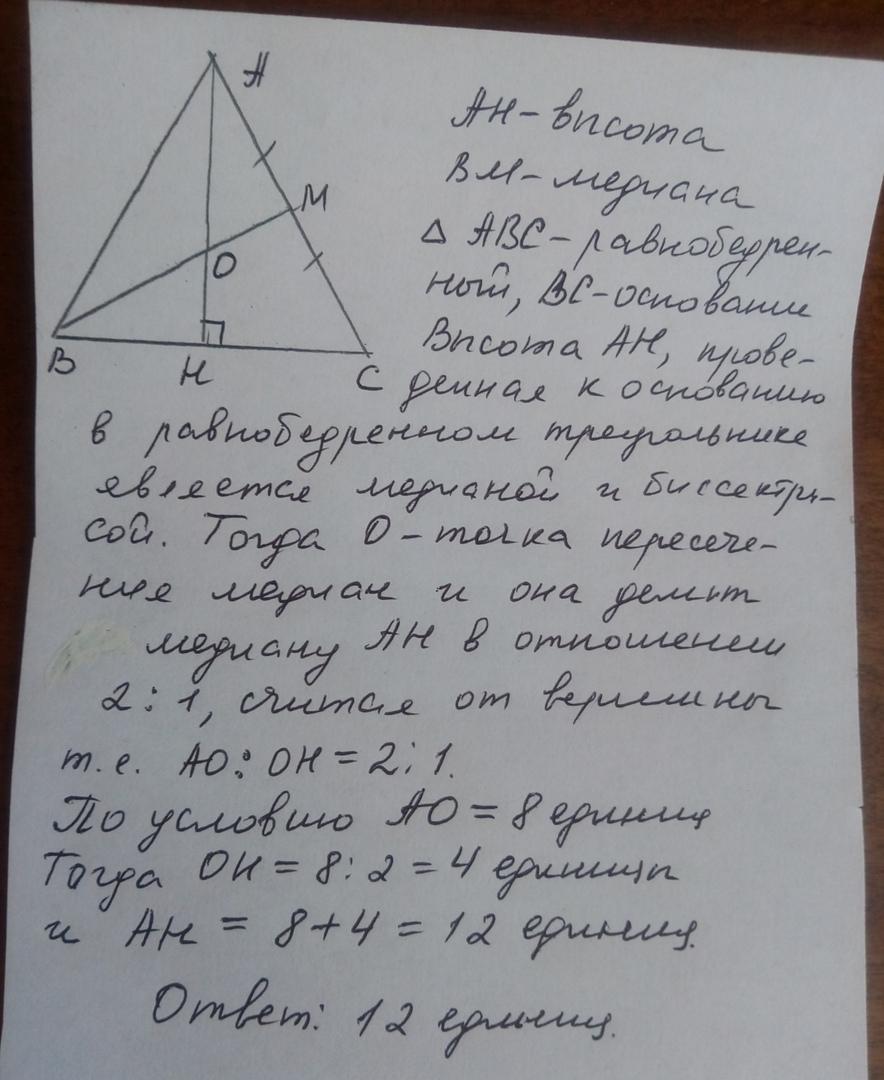 A
M
O
B
H
C
AH - высота
BM - медиана
Δ ABC - равнобедрен-
ный, BC - основание
Высота AH, прове-
денная к основанию
в равнобедренном треугольнике
является медианой и биссектри-
сой. Тогда O - точка пересече-
ния медиан и она делит
медиану AH в отношении
2:1, считая от вершины
т.е. AO:OH = 2:1.
По условию AO = 8 единиц
Тогда OH = 8:2 = 4 единицы
и AH = 8+4 = 12 единиц.
Ответ: 12 единиц.